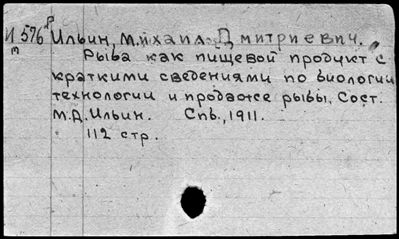 И 576 р Ильин, Михаил Дмитриевич.
м Рыба как пищевой продукт с
краткими сведениями по биологии
технологии и продаже рыбы. Сост.
М.Д. Ильин. Спб., 1911.
112 стр.